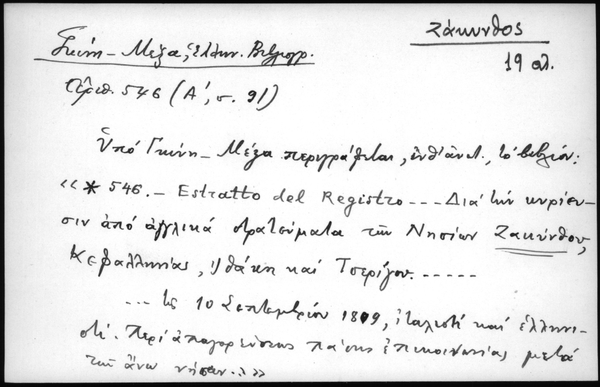 Ζάκυνθος
19 αἰ.
Γκίνη – Μέξα, Ἑλλην. Βιβλιογρ.
Ἀριθ. 546 (Α', σ. 91)
Ὑπό Γκίνη – Μέξα περιγράφεται, ἐνθ' ἀνωτ., τό βιβλίον:
«* 546. – Estratto del Registro --- Διά τήν κυρίευ-
σιν ἀπό ἀγγλικά στρατεύματα τῶν Νησίων Ζακύνθου,
Κεφαλληνίας, Ἰθάκη καί Τσερίγου. -----
--- τῆς 10 Σεπτεμβρίου 1809, ἰταλιστί καί ἑλληνι-
στί. Περί ἀπαγορεύσεως πάσης ἐπικοινωνίας μετά
τῶν ἄνω νήσων.»»